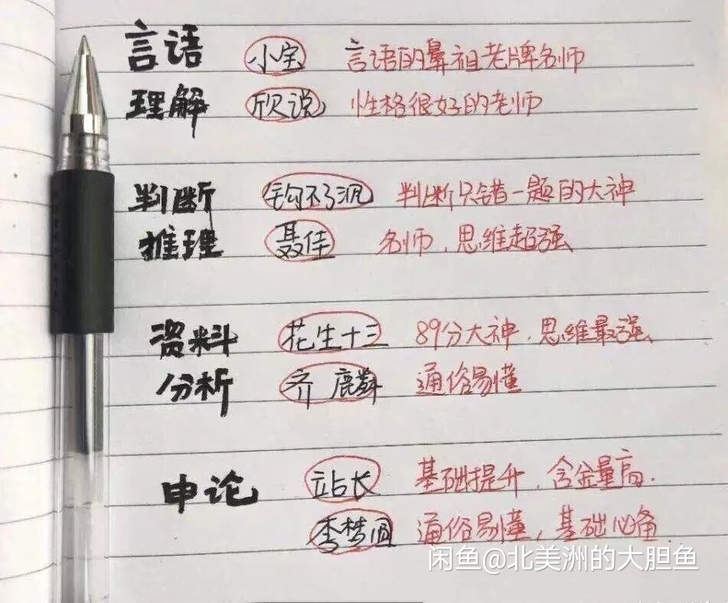 言语 小宝 言语的鼻祖老牌名师
理解 欣说 性格很好的老师
判断 钩不沉 判断只错一题的大神
推理 聂佳 名师，思维超强
资料 花生十三 89分大神，思维最强
分析 齐麟 通俗易懂
申论 站长 基础提升，含金量高.
李梦圆 通俗易懂，基础必备.
闲鱼@北美洲的大胆鱼